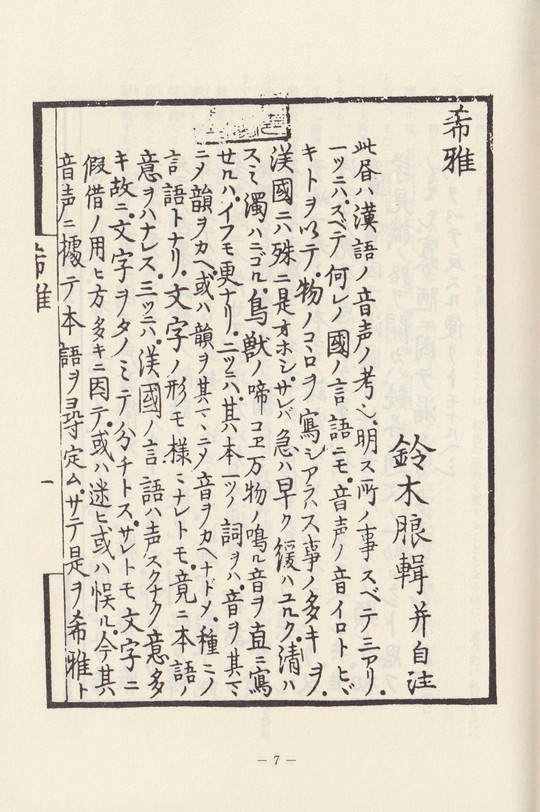 希雅
鈴木朖輯 并自注
此書ハ漢語ノ音声ノ考ヘ也。明ス所ノ事スベテ三アリ。
一ツニハ。スベテ何レノ國ノ言語ニモ。音声ノ音イロトヒヾ
キトヲ以テ。物ノコヽロヲ寫シアラハス事ノ多キヲ。
漢國ニハ殊ニ是オホシ。サレバ急ハ早ク緩ハユルク。清ハ
スミ濁ハニゴル。鳥獸ノ啼コヱ万物ノ鳴ル音ヲ直ニ寫
セルハ。イフモ更ナリ。二ツニハ。其ハ本一ツノ詞ヲハ。音ヲ其マヽ
ニメ韻ヲカヘ或ハ韻ヲ其マヽニメ音ヲカヘナドメ。種ミノ
言語トナリ。文字ノ形モ様ミナレトモ。竟ニ本語ノ
意ヲハナレス。三ツニハ。漢國ノ言語ハ声スクナク意多
キ故ニ。文字ヲタノミテ分チトス。サレトモ文字ニ
假借ノ用ヒ方多キニ因テ。或ハ迷ヒ或ハ悞ル。今其
音声ニ據テ本語ヲ尋定ム。サテ是ヲ希雅ト
希雅
一
— 7 —